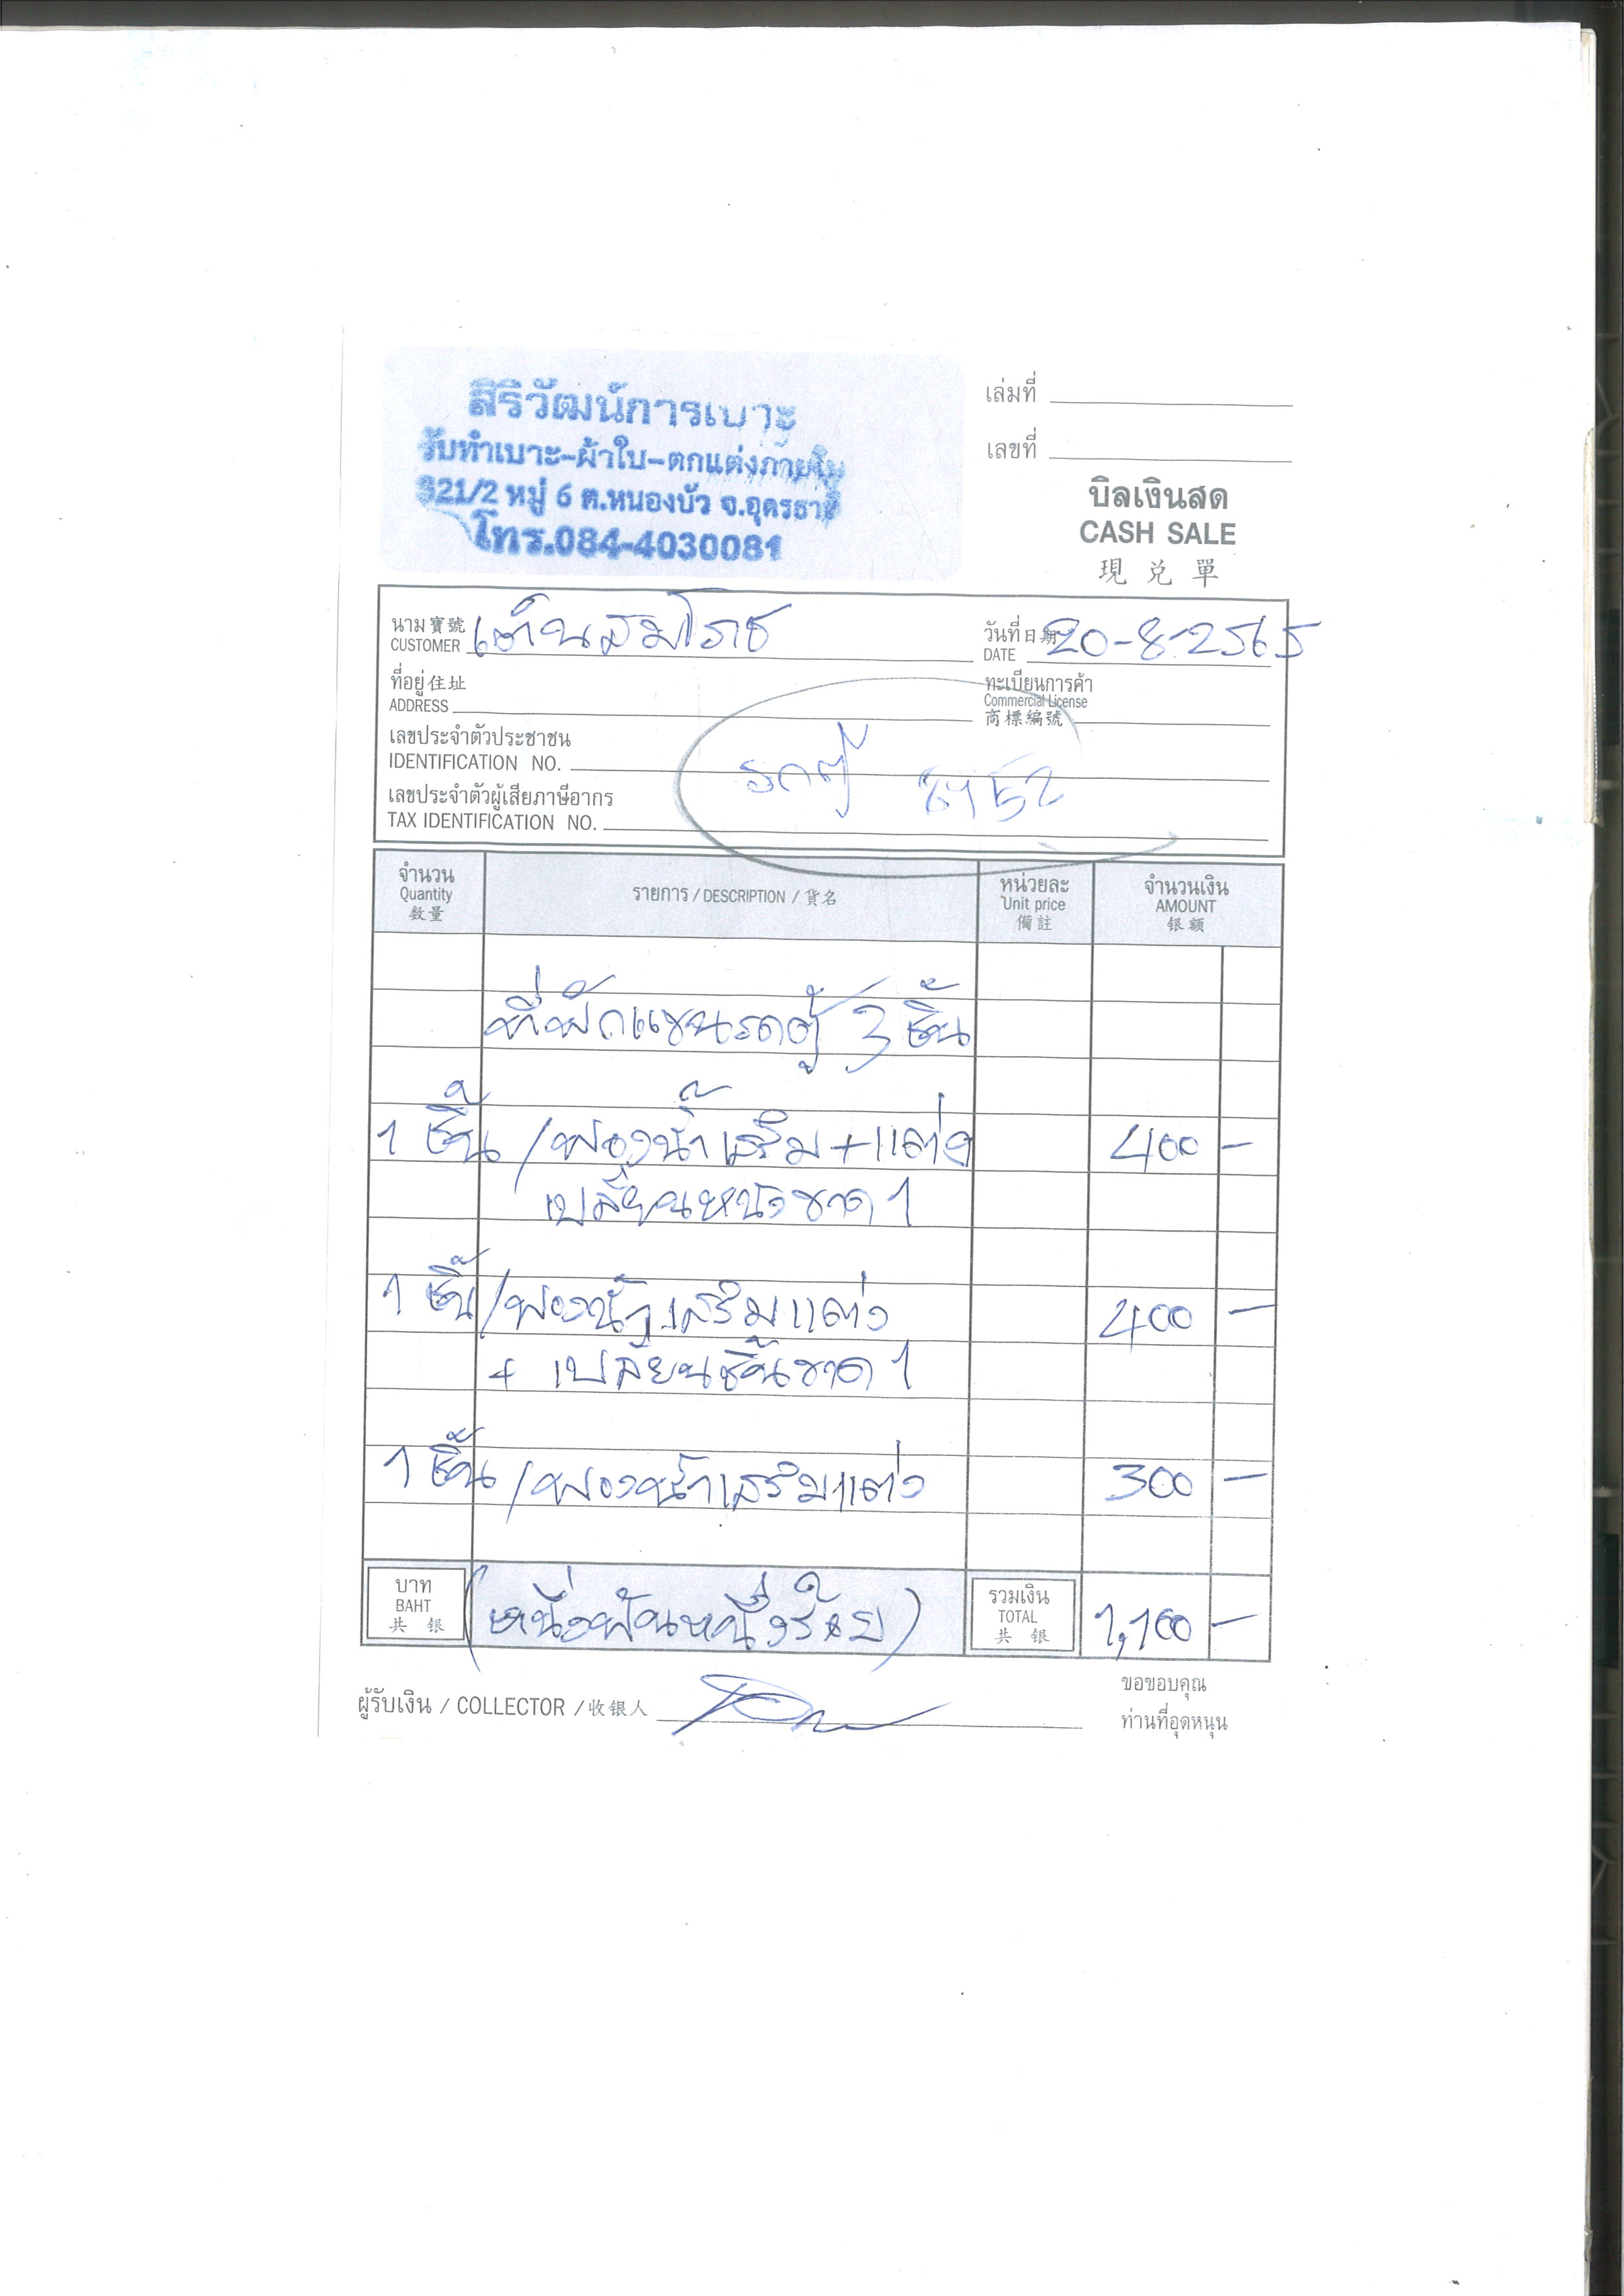 สิริวัฒน์การเบาะ
รับทำเบาะ-ผ้าใบ-ตกแต่งภายใน
321/2 หมู่ 6 ต.หนองบัว จ.อุดรธานี
โทร.084-4030081
เล่มที่
เลขที่
บิลเงินสด
CASH SALE
現兌單
นาม 寶號 CUSTOMER เต็นสมโภช
วันที่ 日期 DATE 20-8-2565
ที่อยู่ 住址 ADDRESS
ทะเบียนการค้า Commercial License 商標編號
เลขประจำตัวประชาชน
IDENTIFICATION NO.
รถตู้
เลขประจำตัวผู้เสียภาษีอากร
TAX IDENTIFICATION NO.
จำนวน Quantity 数量 รายการ / DESCRIPTION / 貨名 หน่วยละ Unit price 備註 จำนวนเงิน AMOUNT 银额
ที่พักแขนรถตู้ 3 ชิ้น
1 ชิ้น / ฟองน้ำเสริม + แต่ง 400 –
เปลี่ยนหนังขาด 1
1 ชิ้น / ฟองน้ำเสริมแต่ง 400 –
+ เปลี่ยนชิ้นขาด 1
1 ชิ้น / ฟองน้ำเสริมแต่ง 300 –
บาท BAHT 共银 (หนึ่งพันหนึ่งร้อย) รวมเงิน TOTAL 共银 1,100 –
ผู้รับเงิน / COLLECTOR / 收银人
ขอขอบคุณ
ท่านที่อุดหนุน